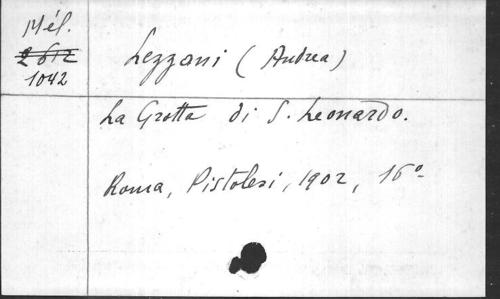 Mél.
2612
1042
Lezzani (Andrea)
La Grotta di S. Leonardo.
Roma, Pistolesi, 1902, 16°